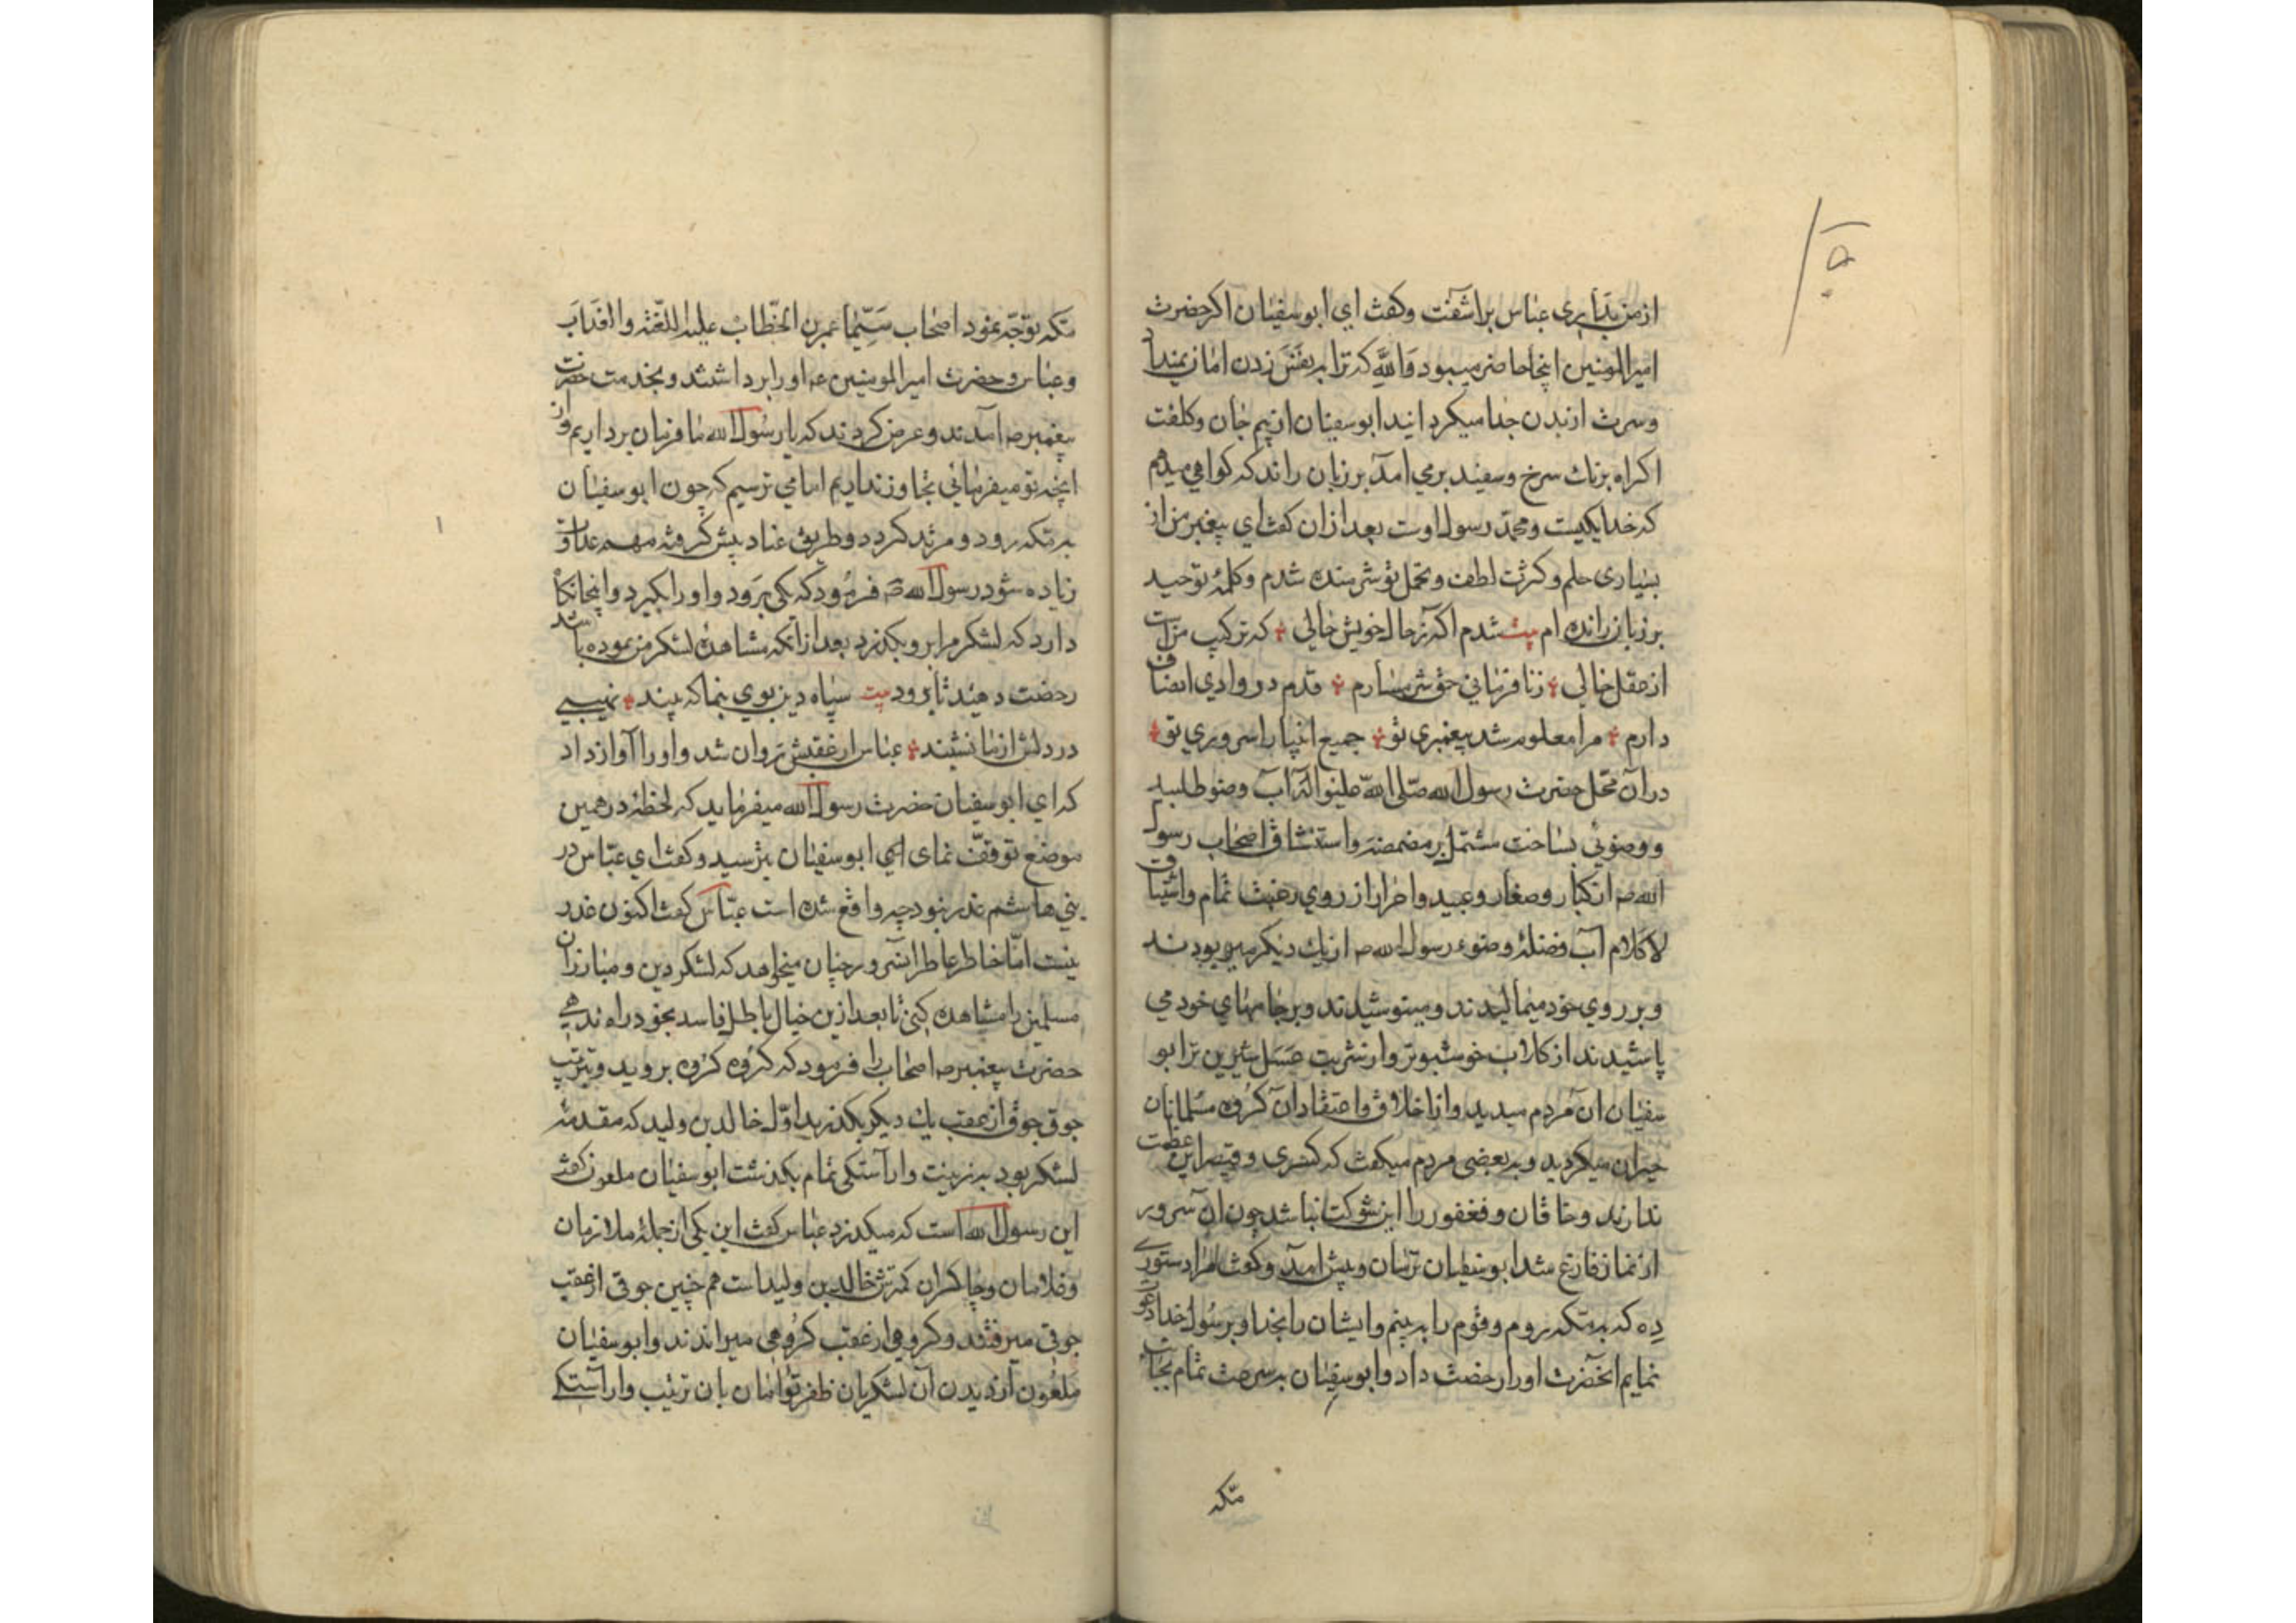 از من بدابری عباس براشفت وکفت ای ابوسفیان اکر حضرت
امیرالمومنین اینجا حاضر میبود والله که ترا به نفس زدن امان نمیداد
وسرت از بدن جدا میکردانید ابوسفیان از بیم جان وکلفت
اکراه بزبان سرخ وسفید برمی امد بر زبان راند که کواهی میدهم
که خدا یکیست ومحمد رسول اوست بعد ازان کفت ای پیغمبر من از
بسیاری حلم وکثرت لطف وتحمل تو شرمنده شدم وکلمۀ توحید
بر زبان رانده ام بیت شدم اکه ز حال خویش خالی که ترکیب منست
از عقل خالی زنافرمانی خود شرمسارم قدم در وادی انصاف
دارم مرا معلوم شد پیغمبری تو جمیع انبیا را سروری تو
دران محل حضرت رسول الله صلی الله علیه واله آب وضو طلبید
ووضوئی بساخت مشتمل بر مضمضه واستنشاق اصحاب رسول
الله ص از کبار وصغار وعبید واحرار از روی رغبت تمام واشتیاق
لاکلام آب فضلۀ وضوء رسول الله ص از یك دیکر میربودند
وبر روی خود میمالیدند ومینوشیدند وبر جامهای خود می
پاشیدند از کلاب خوشبوتر واز شربت عسل شیرین تر ابو
سفیان ان مردم میدید واز اخلاق واعتقاد ان کروه مسلمانان
حیران میکردید وبه بعضی مردم میکفت که کسری وقیصر این عظمت
ندارند وخاقان وفغفور را این شوکت نباشد چون ان سرور
از نماز فارغ شد ابوسفیان ترسان وپیش امد وکفت مرا دستوری
ده که به مکه روم وقوم را به بینم وایشان را بخدا وبرسول خدا دعوت
نمایم انحضرت اورا رخصت داد وابوسفیان به سرعت تمام بجانب
مکه
مکه توجه نمود اصحاب سیما عمر بن الخطاب علیه اللعنة والعذاب
وعباس وحضرت امیرالمومنین ع اورا برداشتند وبخدمت حضرت
پیغمبر ص امدند وعرض کردند که یا رسول الله ما فرمان برداریم واز
انچه تو میفرمائی تجاوز نداریم اما می ترسیم که چون ابوسفیان
به مکه رود ومرتد کردد وطریق عناد پیش کرفته مهم عداوت
زیاده شود رسول الله ص فرمود که یکی برود واورا بکیرد وانجا نکاه
دارد که لشکر مرا برو بکذرد بعد ازانکه مشاهدۀ لشکر من نموده باشد
رخصت دهید تا برود بیت سپاه دین بوی بنما که بیند نهیبی
در دلش از ما نشیند عباس از عقبش روان شد واورا آواز داد
که ای ابوسفیان حضرت رسول الله میفرماید که لحظۀ در همین
موضع توقف نمای ابوسفیان بترسید وکفت ای عباس در
بنی هاشم غدر نبود چه واقع شده است عباس کفت اکنون غدر
نیست امّا خاطر عاطر انسرور چنان میخواهد که لشکر دین ومبارزان
مسلمین را مشاهده کنی تا بعد ازین خیال باطل فاسد بخود راه ندهی
حضرت پیغمبر ص اصحاب را فرمود که کروه کروه بروید وبترتیب
جوق جوق از عقب یك دیکر بکذرید اوّل خالد بن ولید که مقدمۀ
لشکر بود به زینت وآراستکی تمام بکذشت ابوسفیان ملعون کفت
این رسول الله است که میکذرد عباس کفت این یکی از جملۀ ملازمان
وغلامان وچاکران کمترش خالد بن ولید است هم چنین جوقی از عقب
جوقی میرفتند وکروهی از عقب کروهی میراندند وابوسفیان
ملعون از دیدن آن لشکریان ظفر توامان بان ترتیب واراستکی